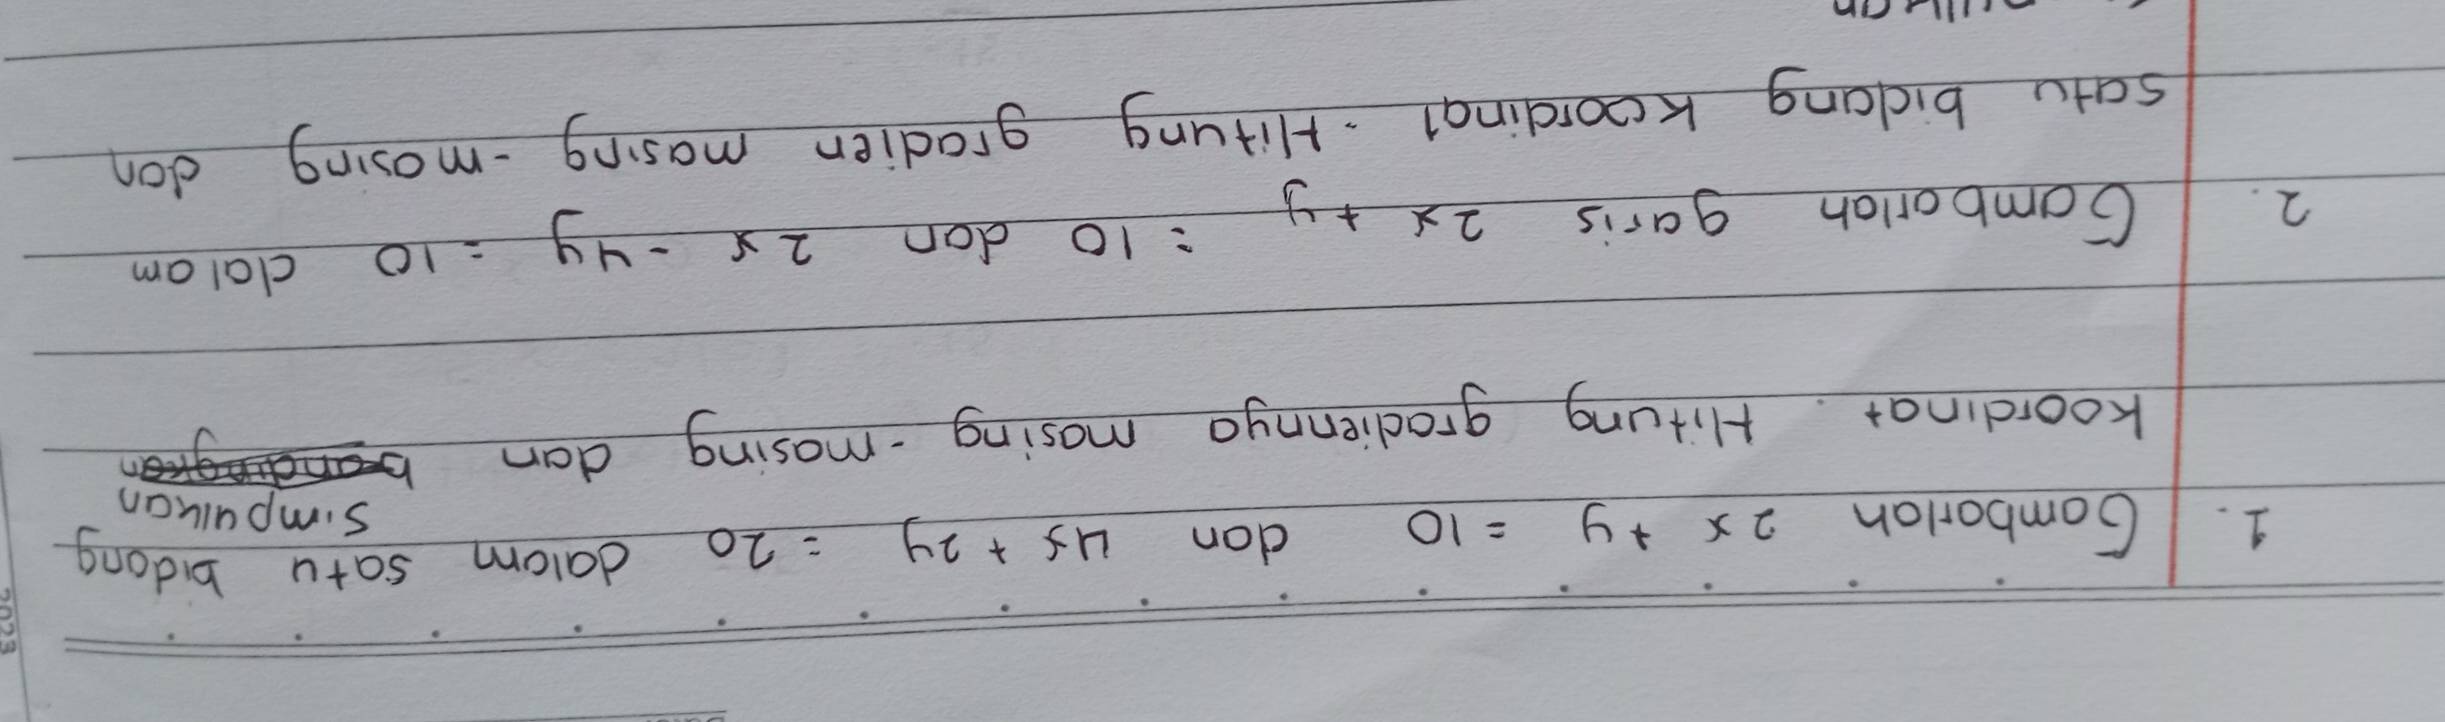 1. Gambarlah 2x + y = 10 dan 4x + 2y = 20 dalam satu bidang
simpulkan
koordinat. Hitung gradiennya masing-masing dan
2. Gambarlah garis 2x + y = 10 dan 2x - 4y = 10 dalam
satu bidang koordinat. Hitung gradien masing-masing dan
2023